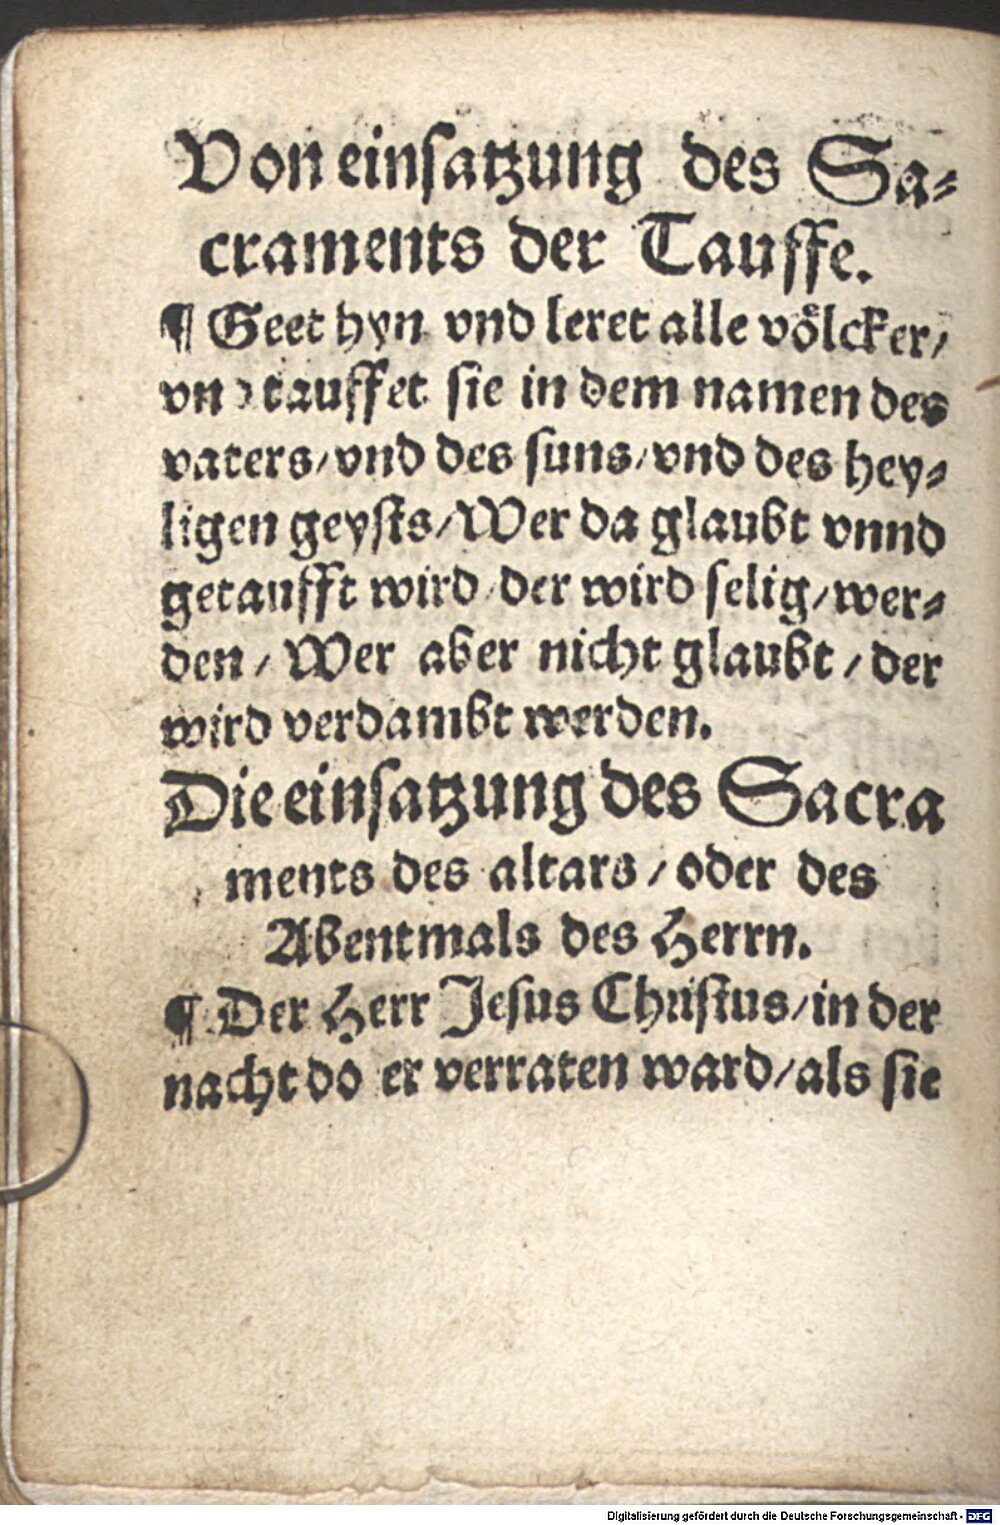 Von einsatzung des Sa-
craments der Tauffe.
¶ Geet hyn vnd leret alle voͤlcker/
vnd tauffet sie in dem namen des
vaters/vnd des suns/vnd des hey-
ligen geysts/Wer da glaubt vnnd
getaufft wird/der wird selig/wer-
den/Wer aber nicht glaubt/der
wird verdambt werden.
Die einsatzung des Sacra
ments des altars/oder des
Abentmals des Herrn.
¶ Der Herr Jesus Christus/in der
nacht do er verraten ward/als sie
Digitalisierung gefördert durch die Deutsche Forschungsgemeinschaft - DFG